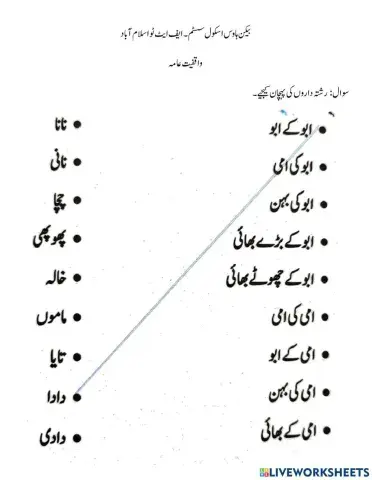 بیکن ہاوس اسکول سسٹم۔ ایف ایٹ ٹو اسلام آباد
واقفیت عامہ
سوال: رشتہ داروں کی پہچان کیجیے۔
ابو کے ابو • نانا
ابو کی امی • نانی
ابو کی بہن • چچا
ابو کے بڑے بھائی • پھوپھی
ابو کے چھوٹے بھائی • خالہ
امی کی امی • ماموں
امی کے ابو • تایا
امی کی بہن • دادا
امی کے بھائی • دادی
LIVEWORKSHEETS